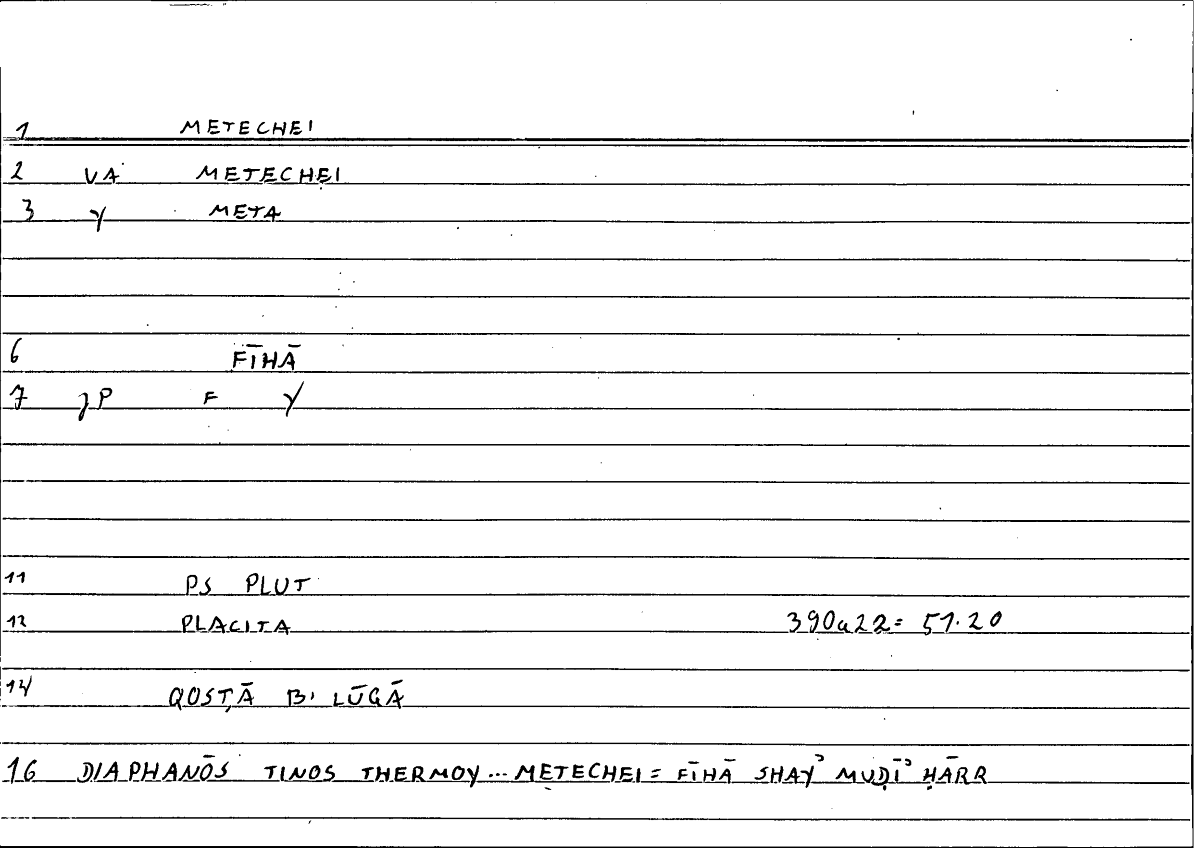 1 METECHEI
2 VA METECHEI
3 γ META
6 FĪHĀ
7 F γ
11 PS PLUT
12 PLACITA 390a22= 51.20
14 QOSṬĀ B. LŪQĀ
16 DIAPHANŌS TINOS THERMOY... METECHEI = FĪHĀ SHAYʾ MUḌĪʾ ḤĀRR